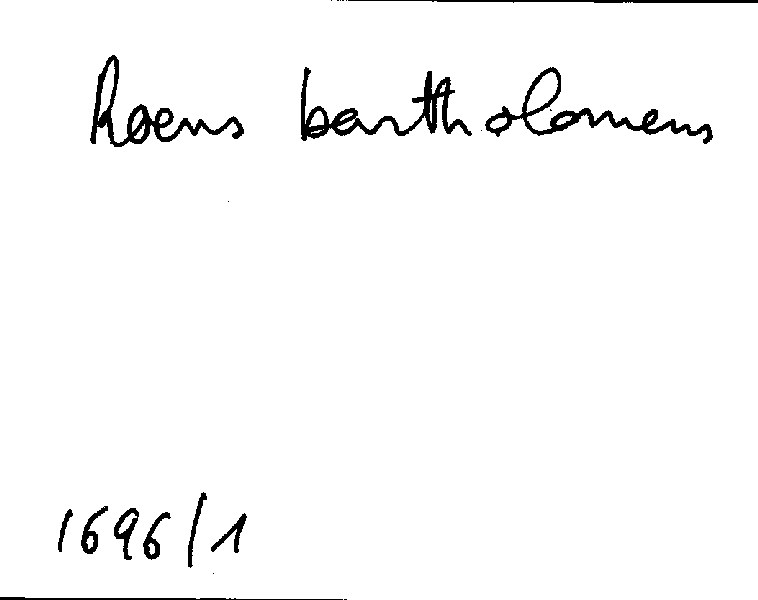 Roens bartholomeus
1696/1